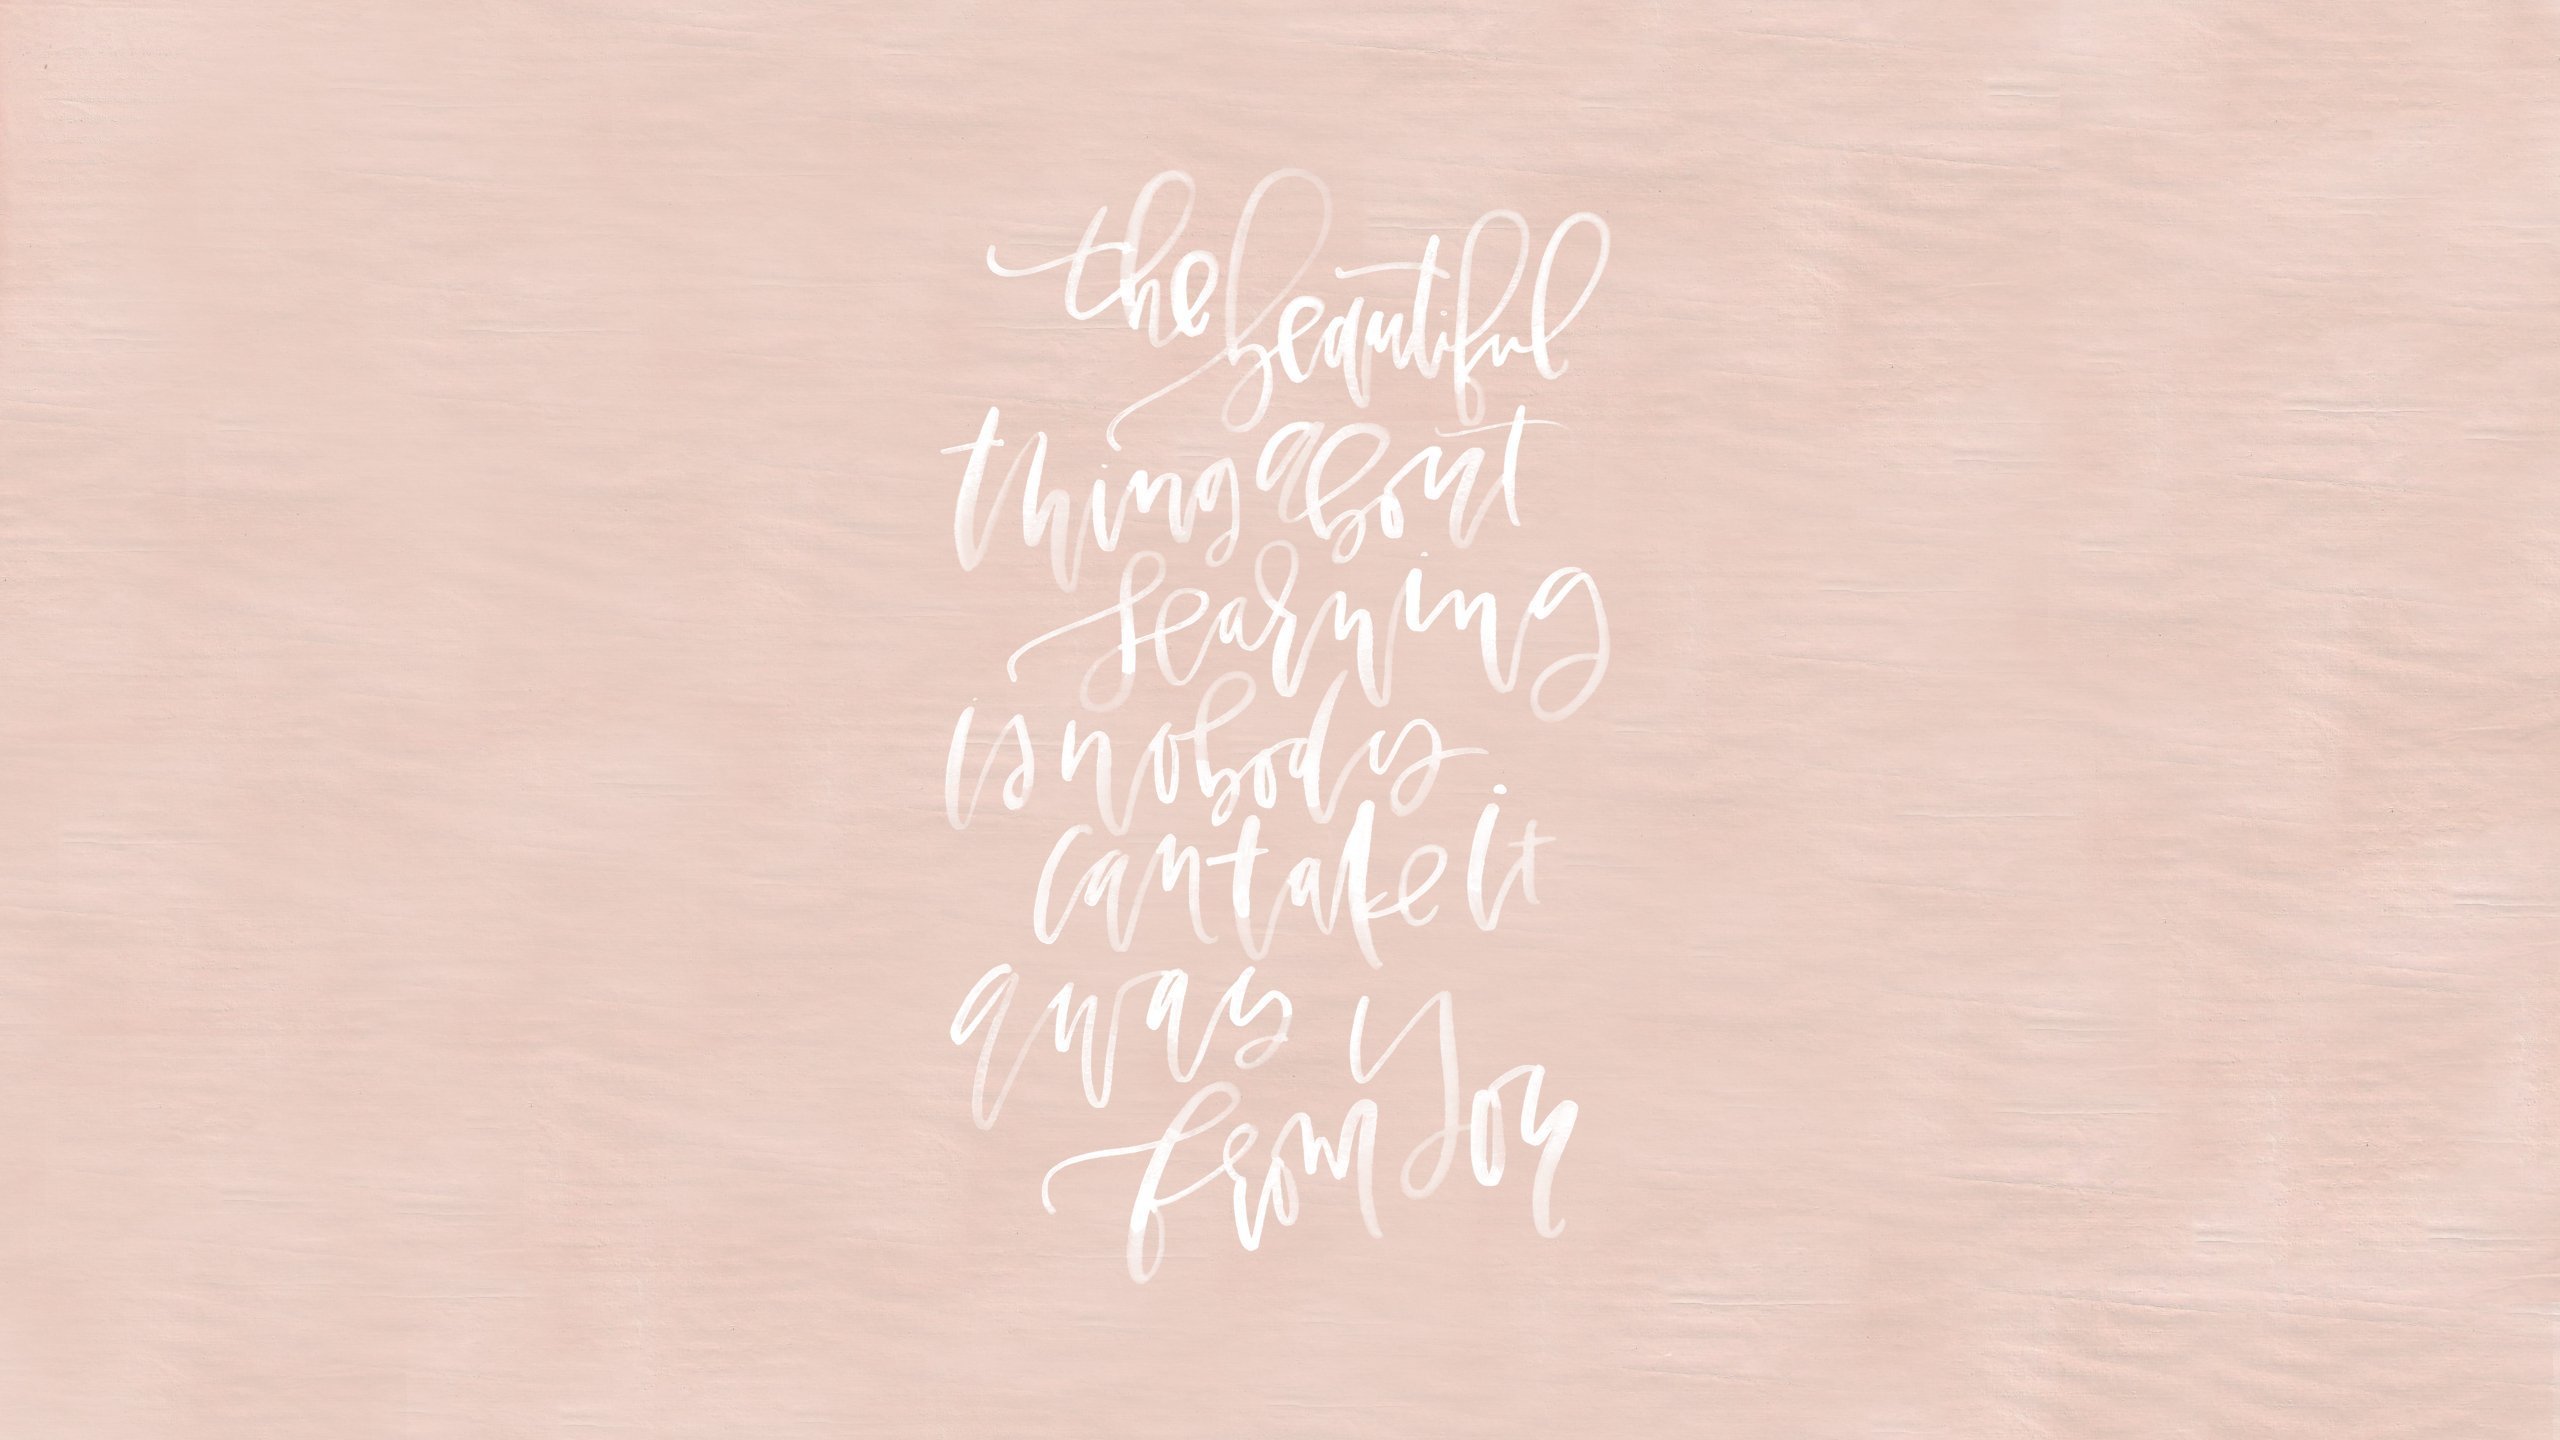 the beautiful
thing about
learning
is nobody
can take it
away
from you